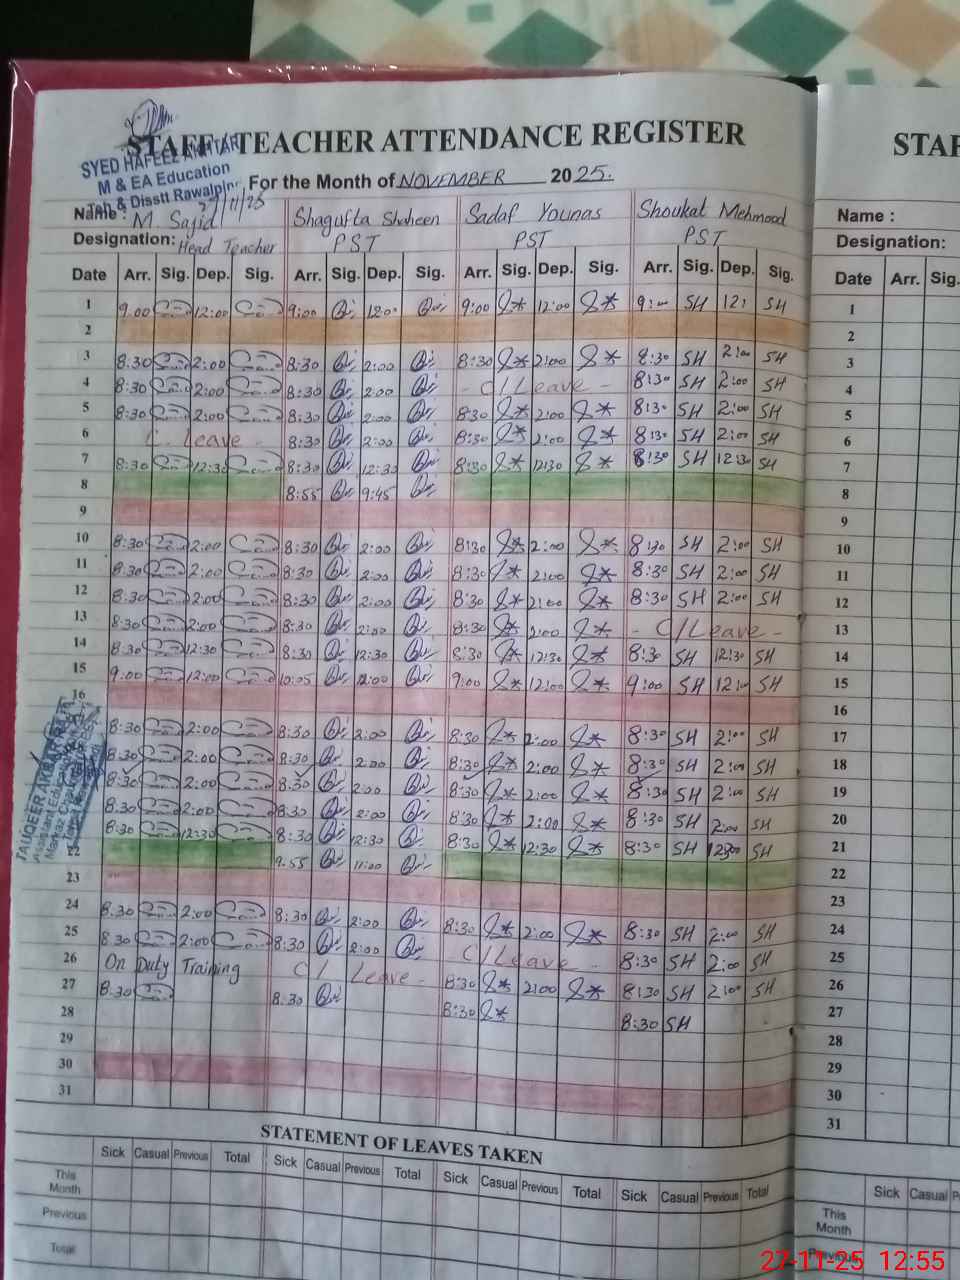 STAFF / TEACHER ATTENDANCE REGISTER
SYED HAFEEZ AKHTAR
M & EA Education
Teh & Disstt Rawalpindi
For the Month of NOVEMBER 2025.
Name : M. Sajid Shagufta Shaheen Sadaf Younas Shoukat Mehmood
Designation: Head Teacher PST PST PST
Date Arr. Sig. Dep. Sig. Arr. Sig. Dep. Sig. Arr. Sig. Dep. Sig. Arr. Sig. Dep. Sig.
1 9.00 12:00 9:00 12:00 9:00 12:00 9:00 SH 12: SH
2
3 8:30 2:00 8:30 2:00 8:30 2:00 8:30 SH 2:00 SH
4 8:30 2:00 8:30 2:00 - C/Leave - 8:30 SH 2:00 SH
5 8:30 2:00 8:30 2:00 8:30 2:00 8:30 SH 2:00 SH
6 C. Leave - 8:30 2:00 8:30 2:00 8:30 SH 2:00 SH
7 8:30 12:30 8:30 12:30 8:30 12:30 8:30 SH 12:30 SH
8 8:55 9:45
9
10 8:30 2:00 8:30 2:00 8:30 2:00 8:30 SH 2:00 SH
11 8:30 2:00 8:30 2:00 8:30 2:00 8:30 SH 2:00 SH
12 8:30 2:00 8:30 2:00 8:30 2:00 8:30 SH 2:00 SH
13 8:30 2:00 8:30 2:00 8:30 2:00 - C/Leave -
14 8:30 12:30 8:30 12:30 8:30 12:30 8:30 SH 12:30 SH
15 9:00 12:00 10:05 12:00 9:00 12:00 9:00 SH 12:00 SH
16
8:30 2:00 8:30 2:00 8:30 2:00 8:30 SH 2:00 SH
8:30 2:00 8:30 2:00 8:30 2:00 8:30 SH 2:00 SH
8:30 2:00 8:30 2:00 8:30 2:00 8:30 SH 2:00 SH
8:30 2:00 8:30 2:00 8:30 2:00 8:30 SH 2:00 SH
8:30 12:30 8:30 12:30 8:30 12:30 8:30 SH SH
22 9:55 11:00
23
24 8:30 2:00 8:30 2:00 8:30 2:00 8:30 SH 2:00 SH
25 8:30 2:00 8:30 2:00 - C/Leave - 8:30 SH 2:00 SH
26 On Duty Training C/ Leave - 8:30 2:00 8:30 SH 2:00 SH
27 8:30 8:30 8:30 8:30 SH
28
29
30
31
STATEMENT OF LEAVES TAKEN
Sick Casual Previous Total Sick Casual Previous Total Sick Casual Previous Total Sick Casual Previous Total
This Month
Previous
Total
STAF
Name :
Designation:
Date Arr. Sig.
1
2
3
4
5
6
7
8
9
10
11
12
13
14
15
16
17
18
19
20
21
22
23
24
25
26
27
28
29
30
31
Sick Casual
This Month
Previous
27-11-25 12:55